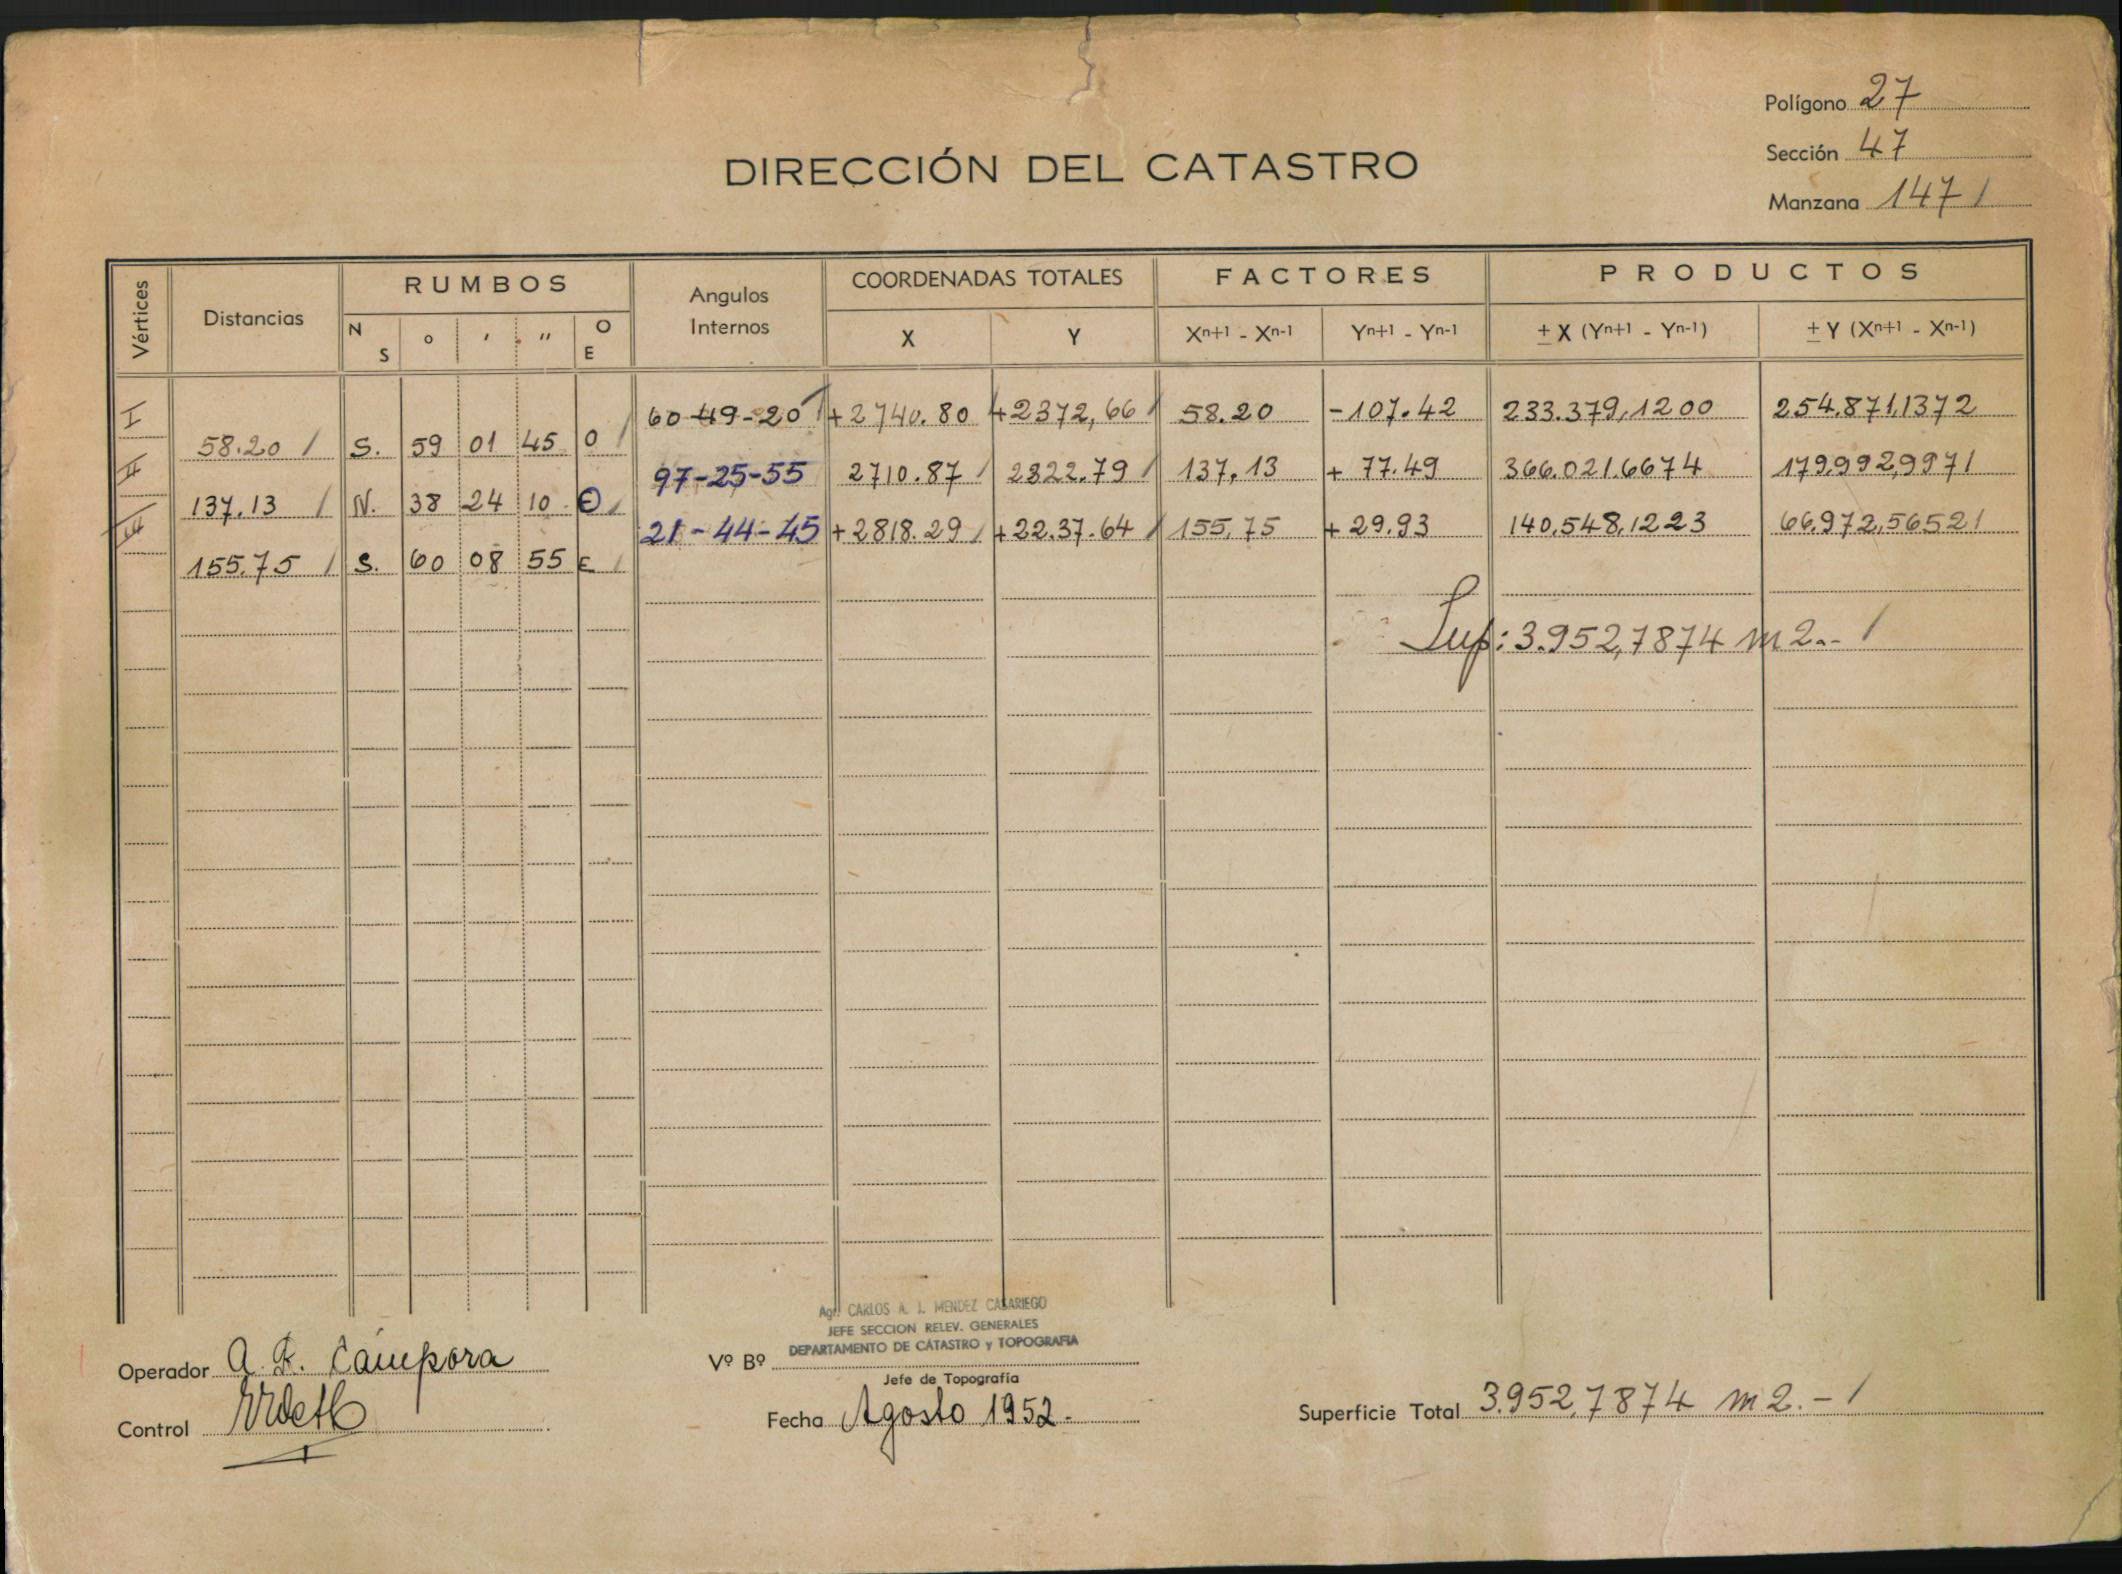 Polígono 27
Sección 47
Manzana 147 /
DIRECCIÓN DEL CATASTRO
Vértices Distancias RUMBOS Angulos Internos COORDENADAS TOTALES FACTORES PRODUCTOS
N S ° ′ ″ O E X Y Xn+1 - Xn-1 Yn+1 - Yn-1 ± X (Yn+1 - Yn-1) ± Y (Xn+1 - Xn-1)
I 60-49-20 +2740.80 +2372,66 / 58.20 -107.42 233.379,1200 254.871,1372
58.20 / S. 59 01 45 O /
II 97-25-55 2710.87 / 2322.79 / 137,13 + 77.49 366.021.6674 179.992,9971
137.13 / N. 38 24 10 O /
III 21-44-45 +2818.29 / +22.37.64 / 155,75 + 29.93 140,548,1223 66.972,5652 /
155.75 / S. 60 08 55 E /
Sup: 3.952,7874 m2.- /
Agr. CARLOS A. J. MENDEZ CASARIEGO
JEFE SECCION RELEV. GENERALES
DEPARTAMENTO DE CATASTRO y TOPOGRAFIA
Operador A. F. Cámpora
Vº Bº
Jefe de Topografía
Control
Fecha Agosto 1952.-
Superficie Total 3.952,7874 m2.- /